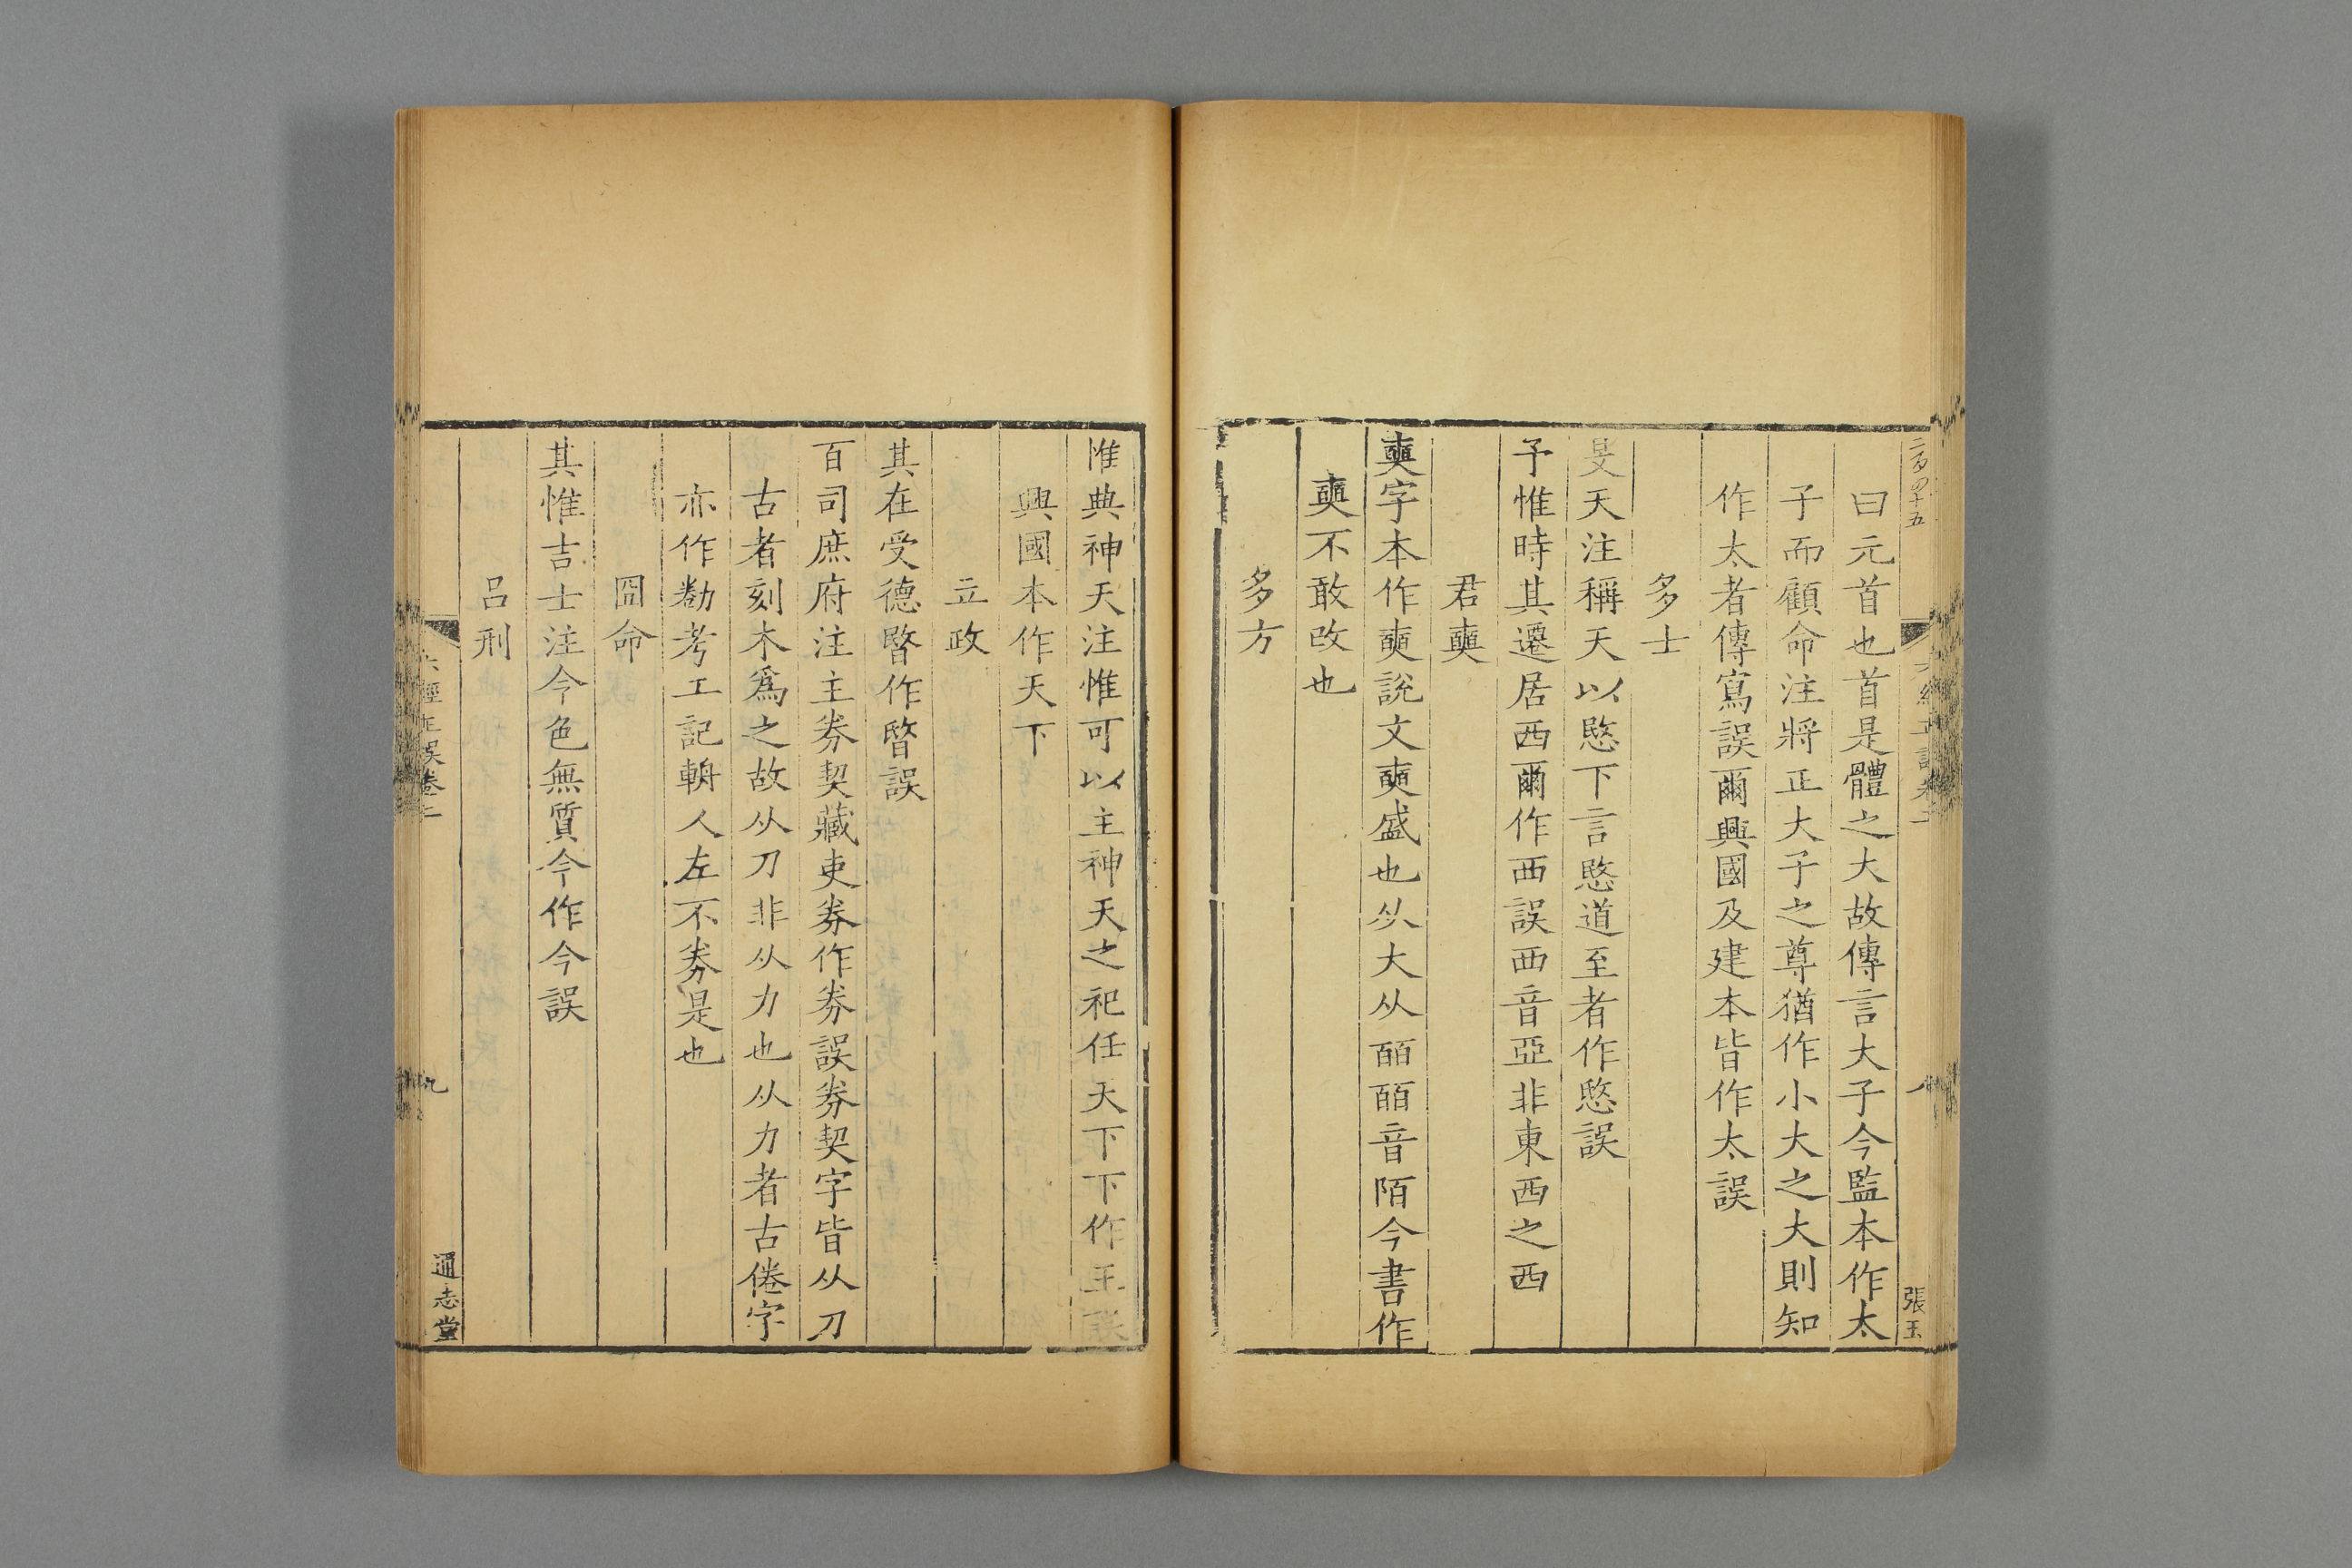 二百四十五
張玉
曰元首也首是體之大故傳言大子今監本作太
子而顧命注將正大子之尊猶作小大之大則知
作太者傳寫誤爾興國及建本皆作太誤
多士
旻天注稱天以愍下言愍道至者作愍誤
予惟時其遷居西爾作西誤西音亞非東西之西
君奭
奭字本作奭說文奭盛也从大从皕皕音陌今書作
奭不敢改也
多方
惟典神天注惟可以主神天之祀任天下下作王誤
興國本作天下
立政
其在受德暋作暋誤
百司庶府注主券契藏吏券作劵誤券契字皆从刀
古者刻木爲之故从刀非从力也从力者古倦字
亦作勌考工記輈人左不劵是也
冏命
其惟吉士注令色無質令作今誤
呂刑
六經正誤卷二
九
通志堂